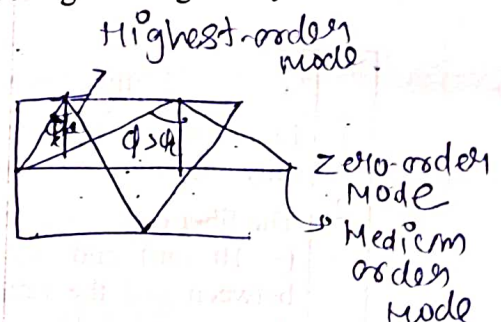 Highest-order
mode
ϕ>ϕc
Zero-order
Mode
Medium
order
Mode